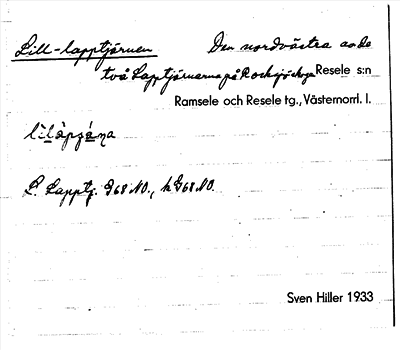 Lill-lapptjärnen Den nordvästra av de
två Lapptjärnarna på Resele s:n
Ramsele och Resele tg., Västernorrl. l.
L. Lapptj. G68 NO., h G68 NO.
Sven Hiller 1933